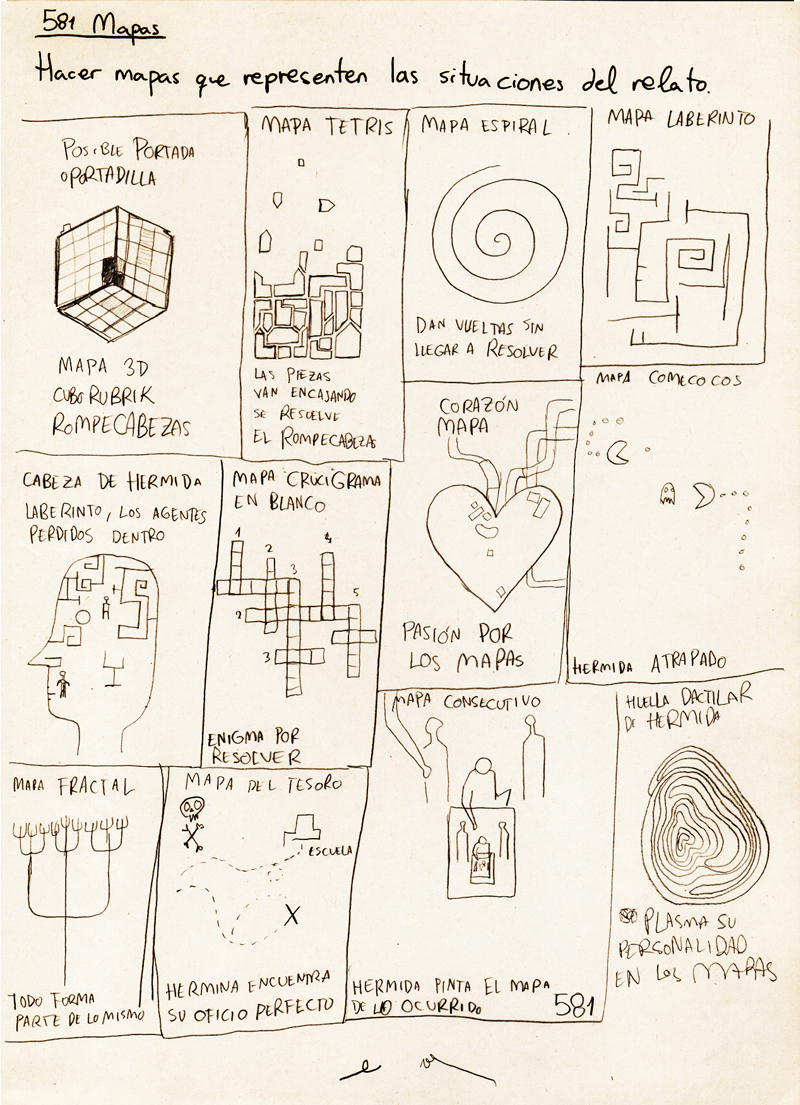 581 Mapas
Hacer mapas que representen las situaciones del relato.
POSIBLE PORTADA
O PORTADILLA
MAPA 3D
CUBO RUBRIK
ROMPECABEZAS
MAPA TETRIS
LAS PIEZAS
VAN ENCAJANDO
SE RESUELVE
EL ROMPECABEZAS
MAPA ESPIRAL
DAN VUELTAS SIN
LLEGAR A RESOLVER
MAPA LABERINTO
CABEZA DE HERMIDA
LABERINTO, LOS AGENTES
PERDIDOS DENTRO
MAPA CRUCIGRAMA
EN BLANCO
1
2
3
4
5
2
3
ENIGMA POR
RESOLVER
CORAZÓN
MAPA
PASIÓN POR
LOS MAPAS
MAPA COMECOCOS
HERMIDA ATRAPADO
MAPA FRACTAL
TODO FORMA
PARTE DE LO MISMO
MAPA DEL TESORO
ESCUELA
X
HERMINA ENCUENTRA
SU OFICIO PERFECTO
MAPA CONSECUTIVO
HERMIDA PINTA EL MAPA
DE LO OCURRIDO
581
HUELLA DACTILAR
DE HERMIDA
PLASMA SU
PERSONALIDAD
EN LOS MAPAS